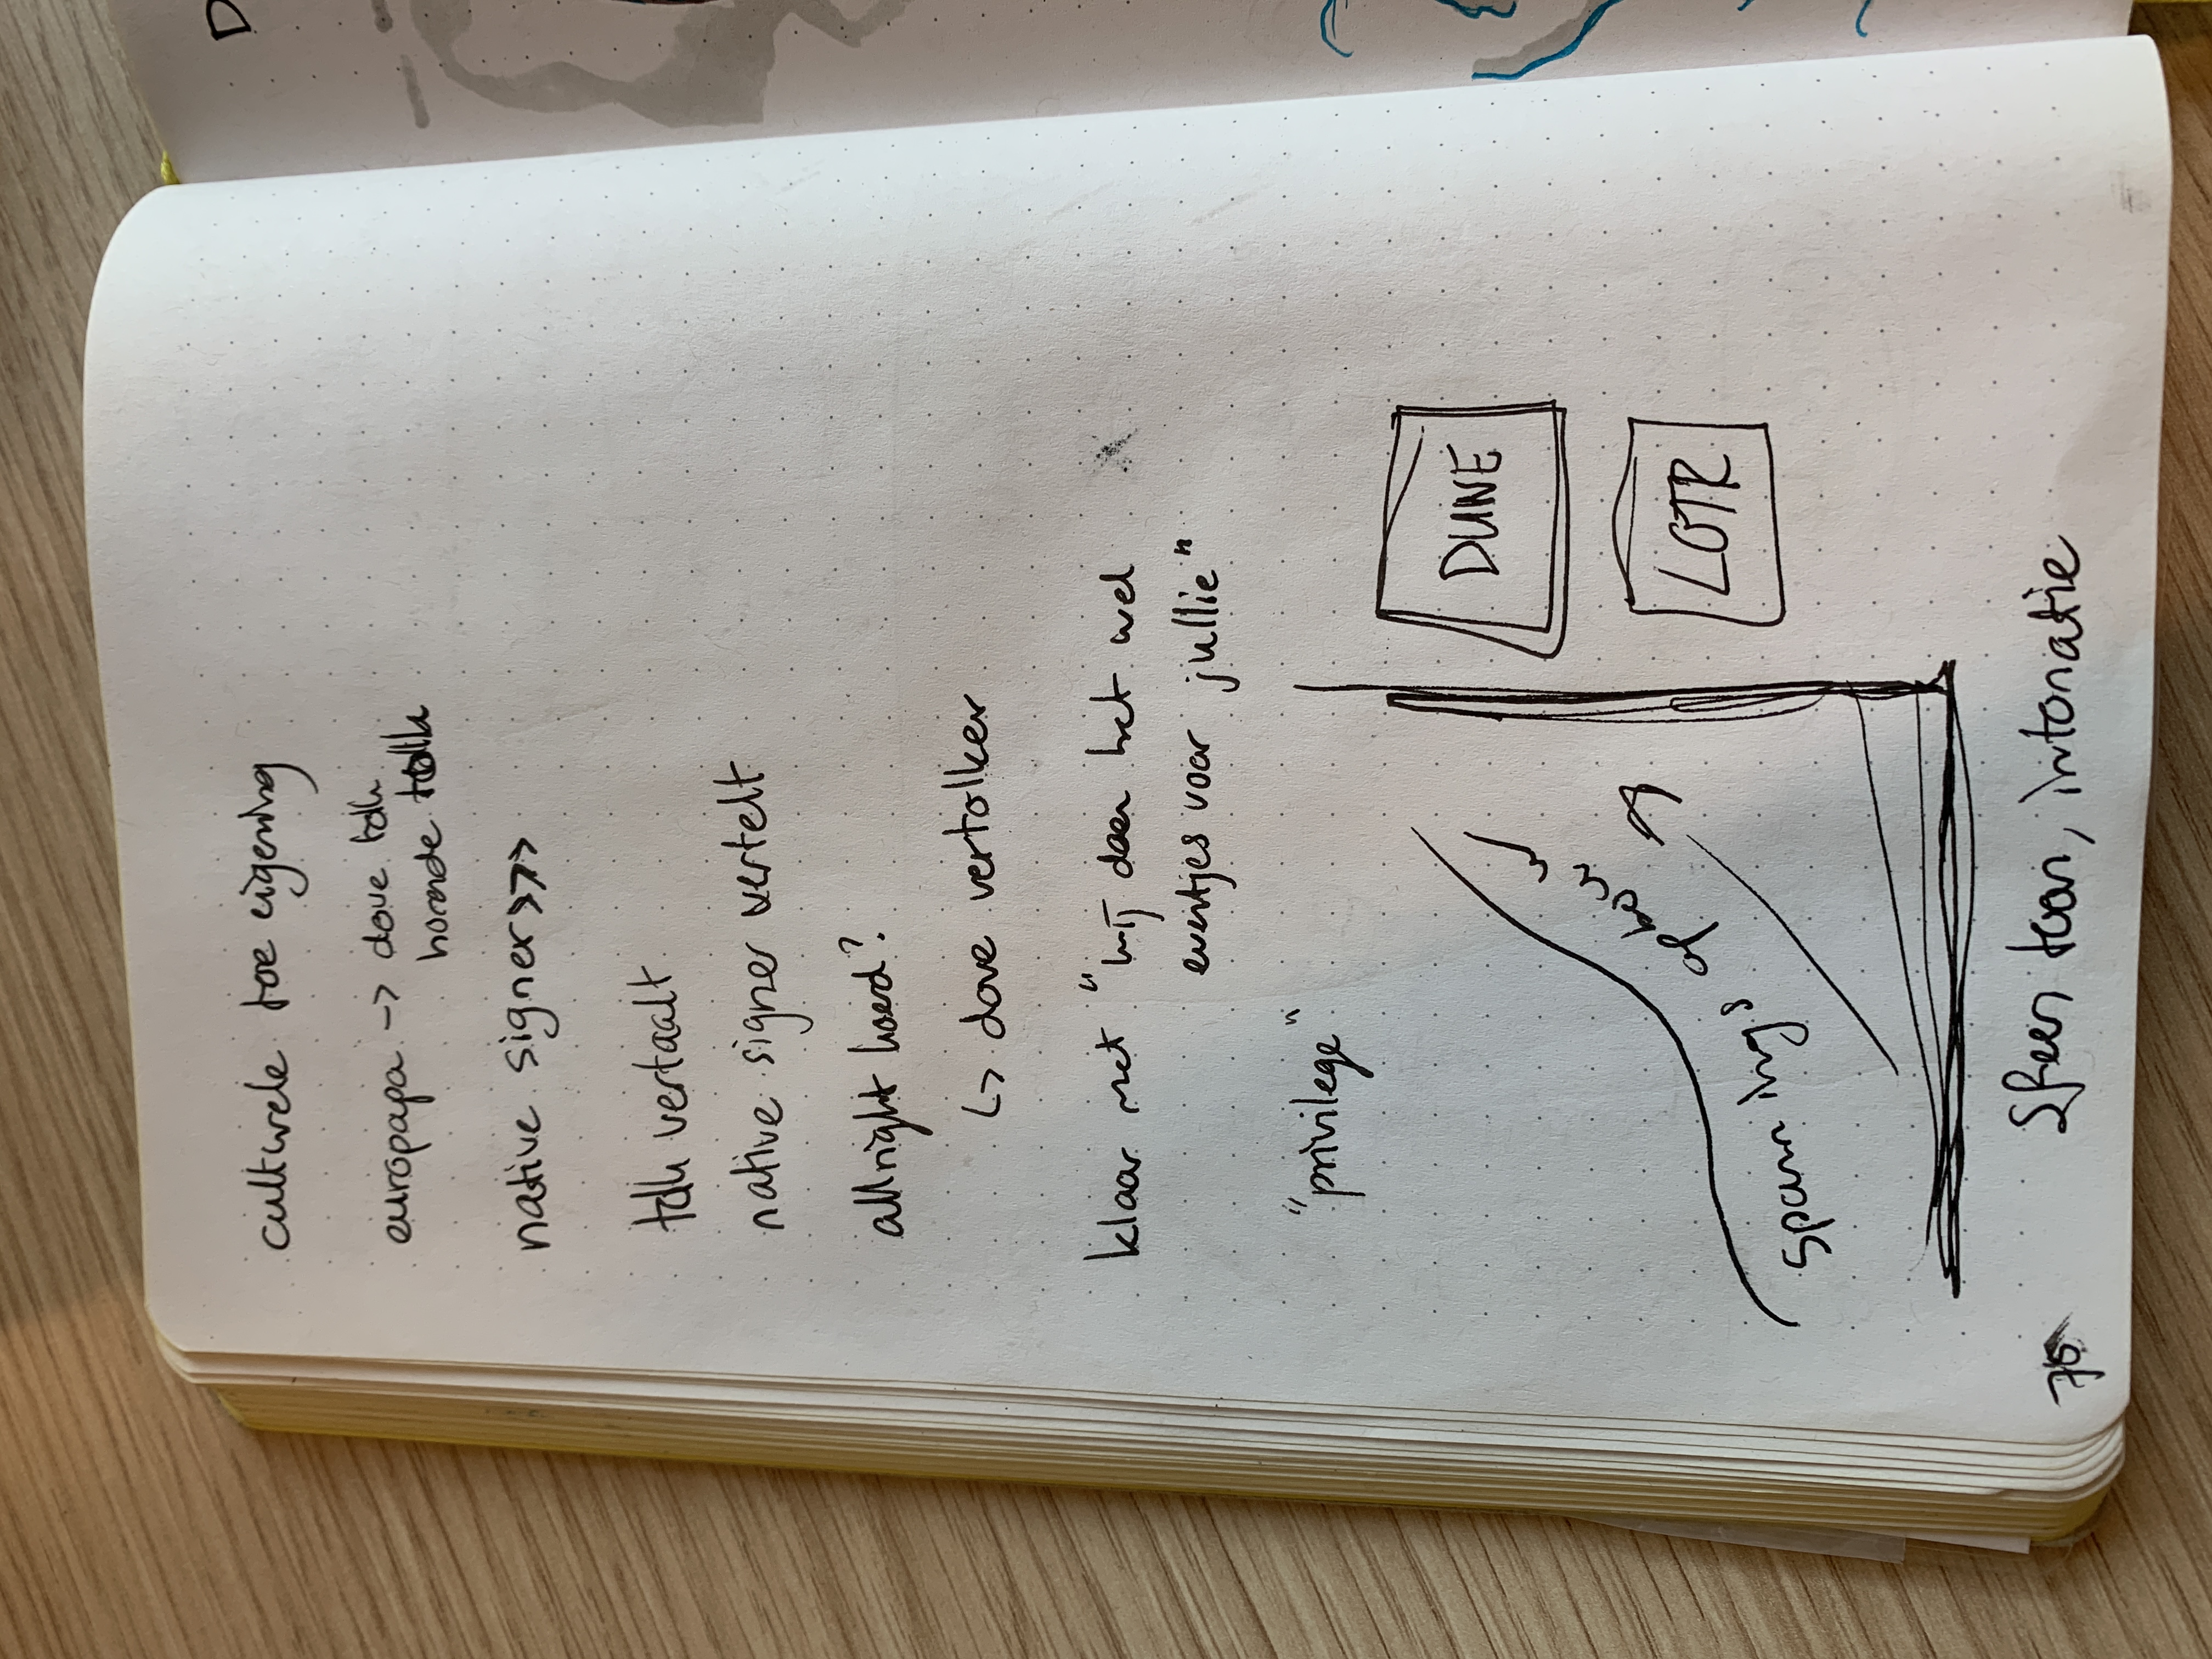 culturele toe eigening
europapa -> dove tolk
horende tolk
native signer >>>
tolk vertaalt
native signer vertelt
allright hoerd?
↳ dove vertolker
klaar met "wij doen het wel
eventjes voor jullie"
"privilege"
DUNE
spannings opbouw
LOTR
Sfeer, toon, intonatie
70
D